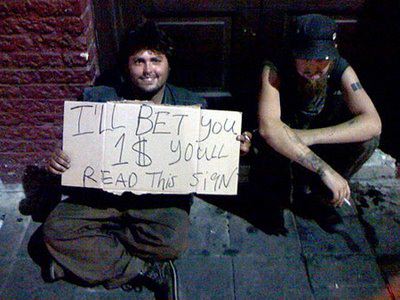 I'LL BET you
1$ you'll
READ This SigN